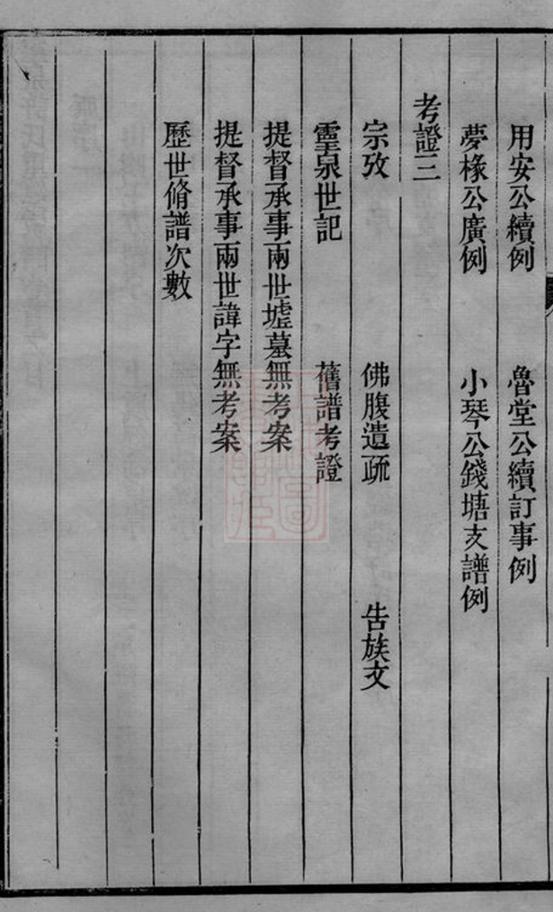 用安公續例　魯堂公續訂事例
夢椽公廣例　小琴公錢塘支譜例
考證三
宗攷　佛腹遺疏　告族文
靈泉世記　舊譜考證
提督承事兩世墟墓無考案
提督承事兩世諱字無考案
歷世脩譜次數